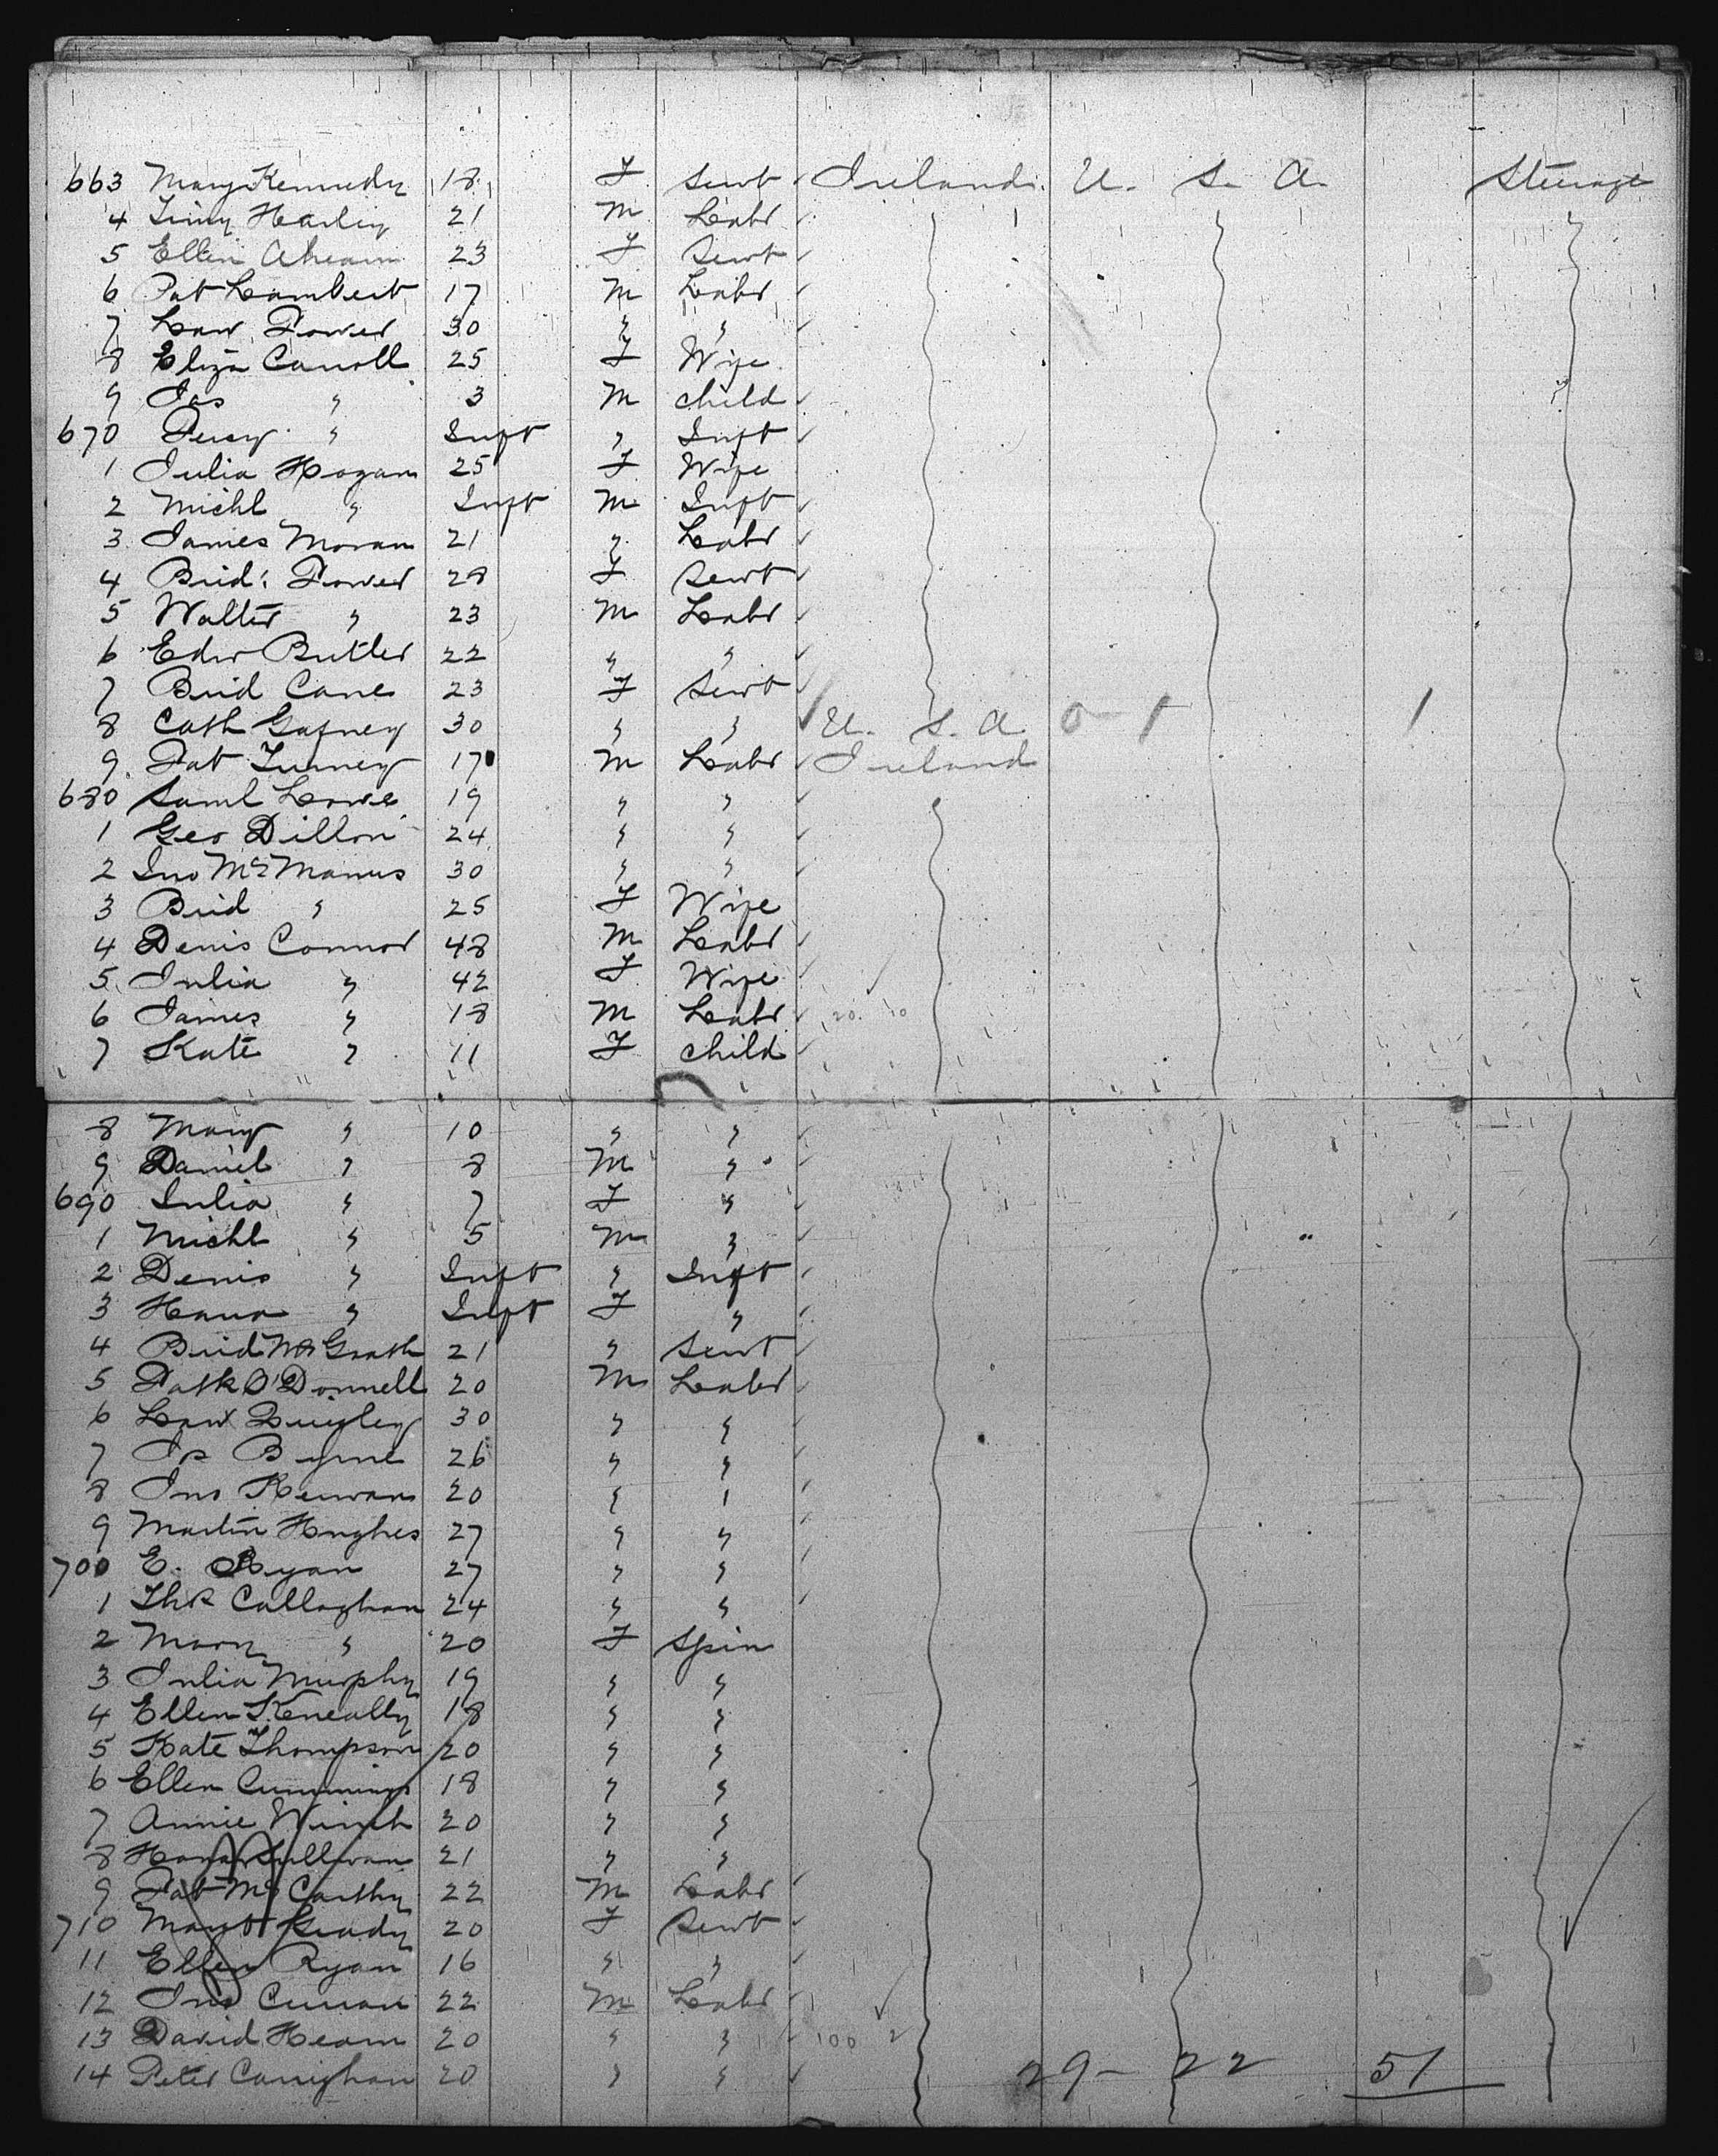 663 Mary Kennedy 18 F Servt Ireland U. S. A. Steerage
4 Hurley 21 M Labr
5 Ellen Ahearn 23 F Servt
6 Pat Lambert 17 M Labr
7 Law Power 30 " "
8 Eliza Carroll 25 F Wife
9 Jas " 3 M child
670 Percy " Inft " Inft
1 Julia Hogan 25 F Wife
2 Michl " Inft M Inft
3 James Moran 21 " Labr
4 Brid: Power 28 F Servt
5 Walter " 23 M Labr
6 Edw Butler 22 " "
7 Brid Cane 23 F Servt
8 Cath Gafney 30 " " U. S. A. 0 - 1 1
9 Pat 17 M Labr Ireland
680 Saml Lowe 19 " "
1 Geo Dillon 24 " "
2 Jno McManus 30 " "
3 Brid " 25 F Wife
4 Denis Connor 48 M Labr
5 Julia " 42 F Wife
6 James " 18 M Labr 20. 10
7 Kate " 11 F child
8 Mary " 10 " "
9 Daniel " 8 M "
690 Julia " 7 F "
1 Michl " 5 M "
2 Denis " Inft " Inft
3 Hana " Inft F "
4 Brid McGrath 21 " Servt
5 Patk O'Donnell 20 M Labr
6 Law Quigley 30 " "
7 Js Byrne 26 " "
8 Jno Kerwan 20 " "
9 Martin Hughes 27 " "
700 E. Ryan 27 " "
1 Ths Callaghan 24 " "
2 Mary " 20 F Spin
3 Julia Murphy 19 " "
4 Ellen Keneally 18 " "
5 Kate Thompson 20 " "
6 Ellen Cummings 18 " "
7 Annie 20 " "
8 Hana Sullivan 21 " "
9 Pat McCarthy 22 M Labr
710 Margt Grady 20 F Servt
11 Ellen Ryan 16 " "
12 Jno Curran 22 M Labr
13 David Hearn 20 " " 100 2
14 Peter Carrighan 20 " " 29 - 22 51